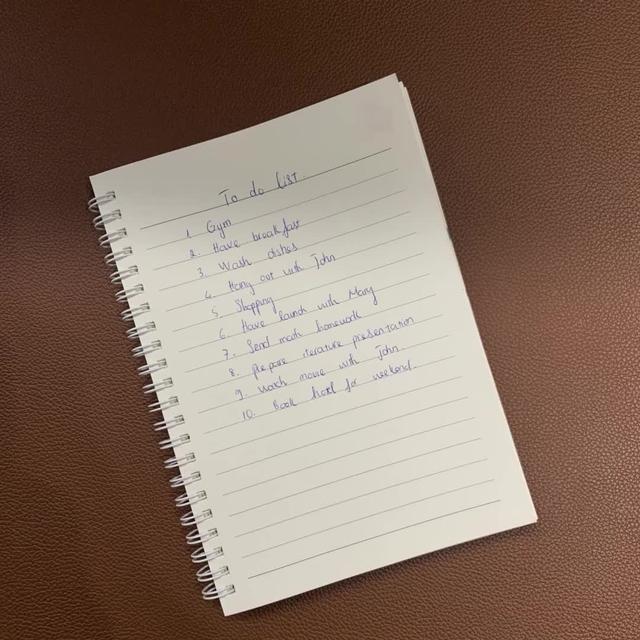 To do list
1. Gym
2. Have breakfast
3. Wash dishes
4. Hang out with John
5. Shopping
6. Have launch with Mary
7. Send math homework
8. prepare literature presentation
9. watch movie with John
10. Book hotel for weekend.